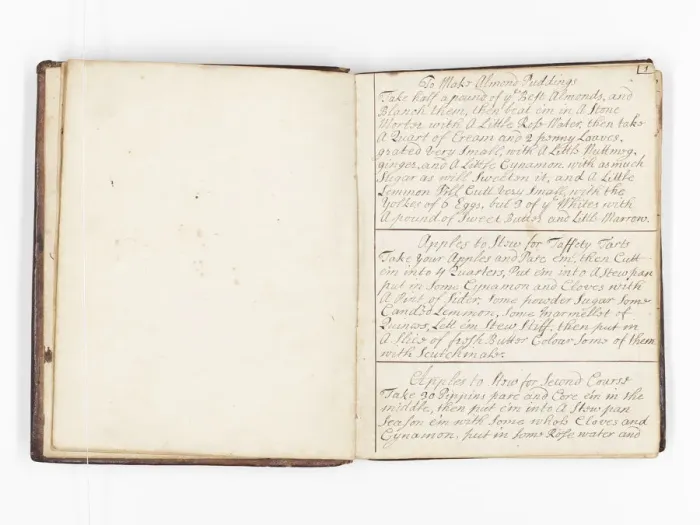 1
To Make Almond Puddings
Take half a pound of yᵉ Best Almonds, and
Blanch them, then beat em in A Stone
Morter with A Little Rose Water, then take
A Quart of Cream and 2 penny Loaves,
grated Very Small, with A Little Nuttmeg,
ginger, and A Little Cynamon with as much
Sugar as will Sweeten it, and A Little
Lemmon Pill Cutt Very Small, with the
Yolkes of 6 Eggs, but 3 of yᵉ Whites with
A pound of Sweet Butter and Little Marrow.
Apples to Stew for Taffety Tarts
Take Your Apples and Pare em, then Cutt
em into 4 Quarters, Put em into A Stew pan
put in Some Cynamon and Cloves with
A Pint of Sider, some powder Sugar Some
Candid Lemmon, Some Marmellet of
Quinces, Lett em Stew Stiff, then put in
A Slice of fresh Butter Colour Some of them
with
Apples to Stew for Second Course
Take 20 Pippins pare and Core em in the
middle, then put em into A Stew pan
Season em with Some whole Cloves and
Cynamon, put in Some Rose water and